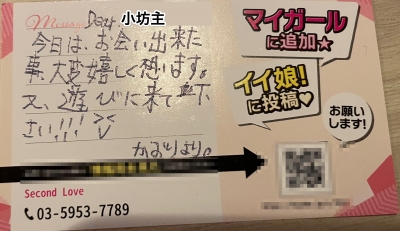 Message
Day 小坊主
今日は、お会い出来た
事、大変嬉しく想います。
又、遊びに来て下
さい!!!
かおりより。
マイガール
に追加★
イイ娘!
に投稿♥
お願い
します!
Second Love
03-5953-7789